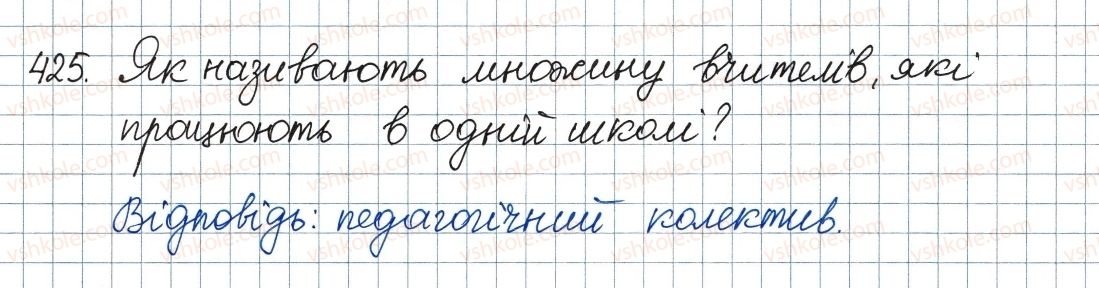 425. Як називають множину вчителів, які
працюють в одній школі?
Відповідь: педагогічний колектив.